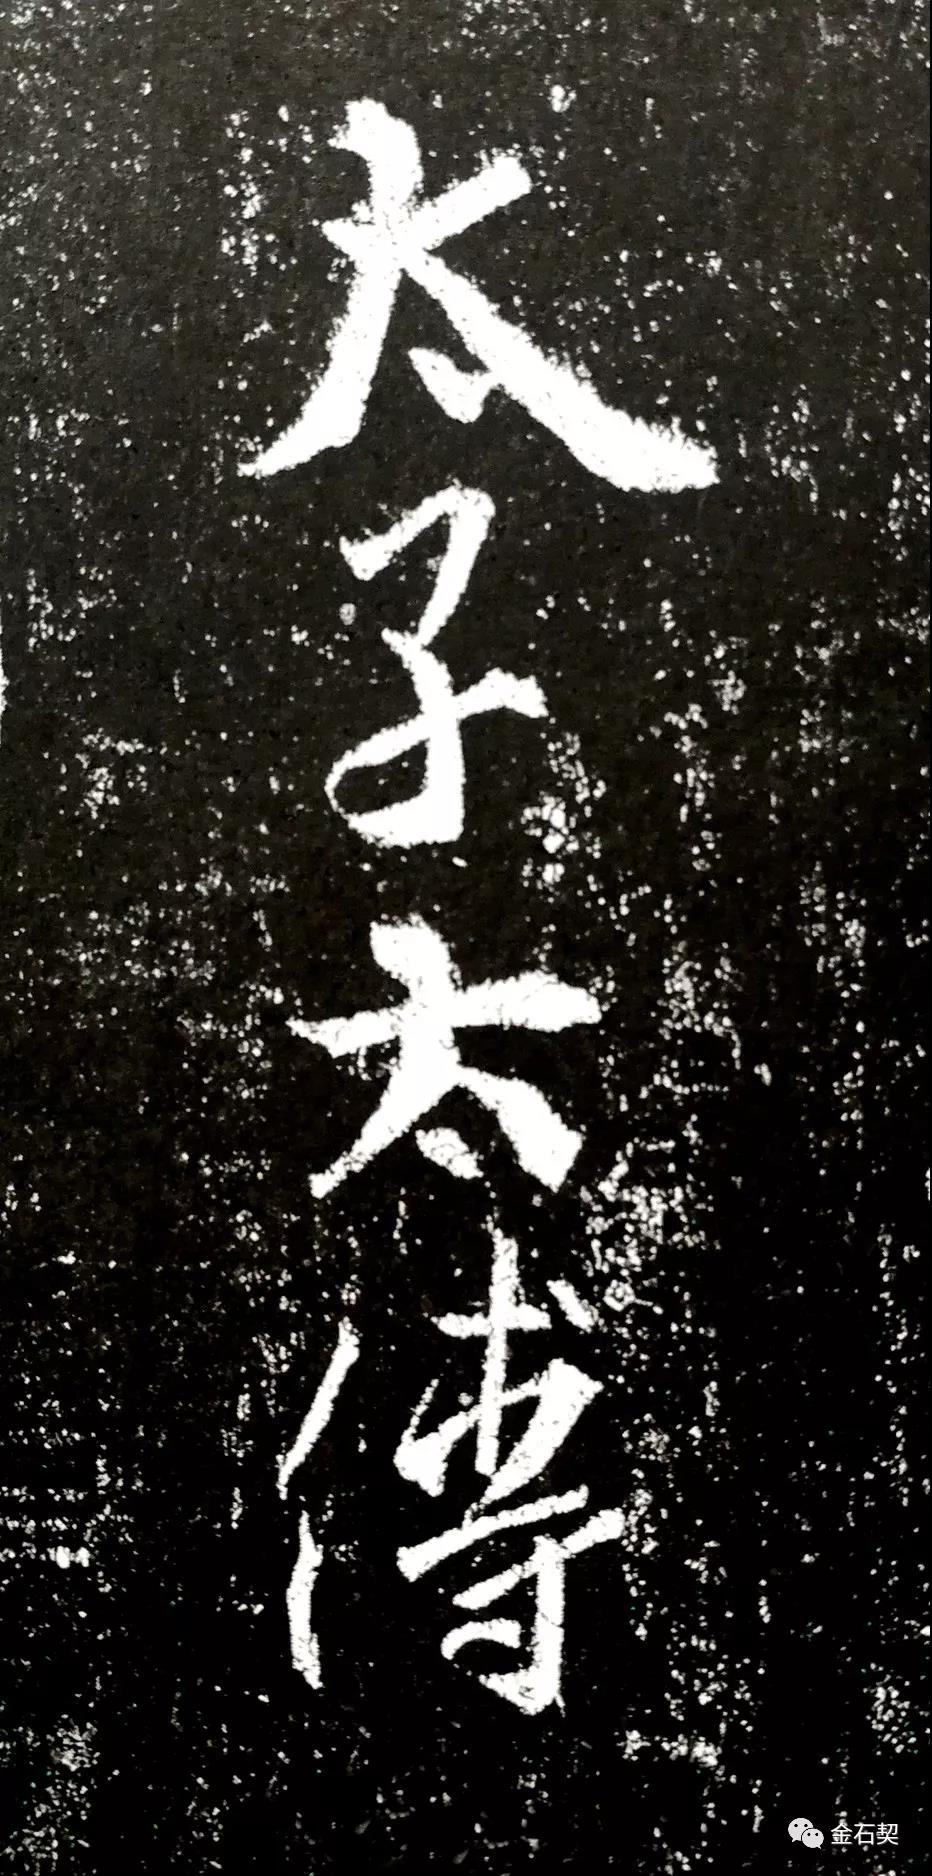 太子太傅
金石契